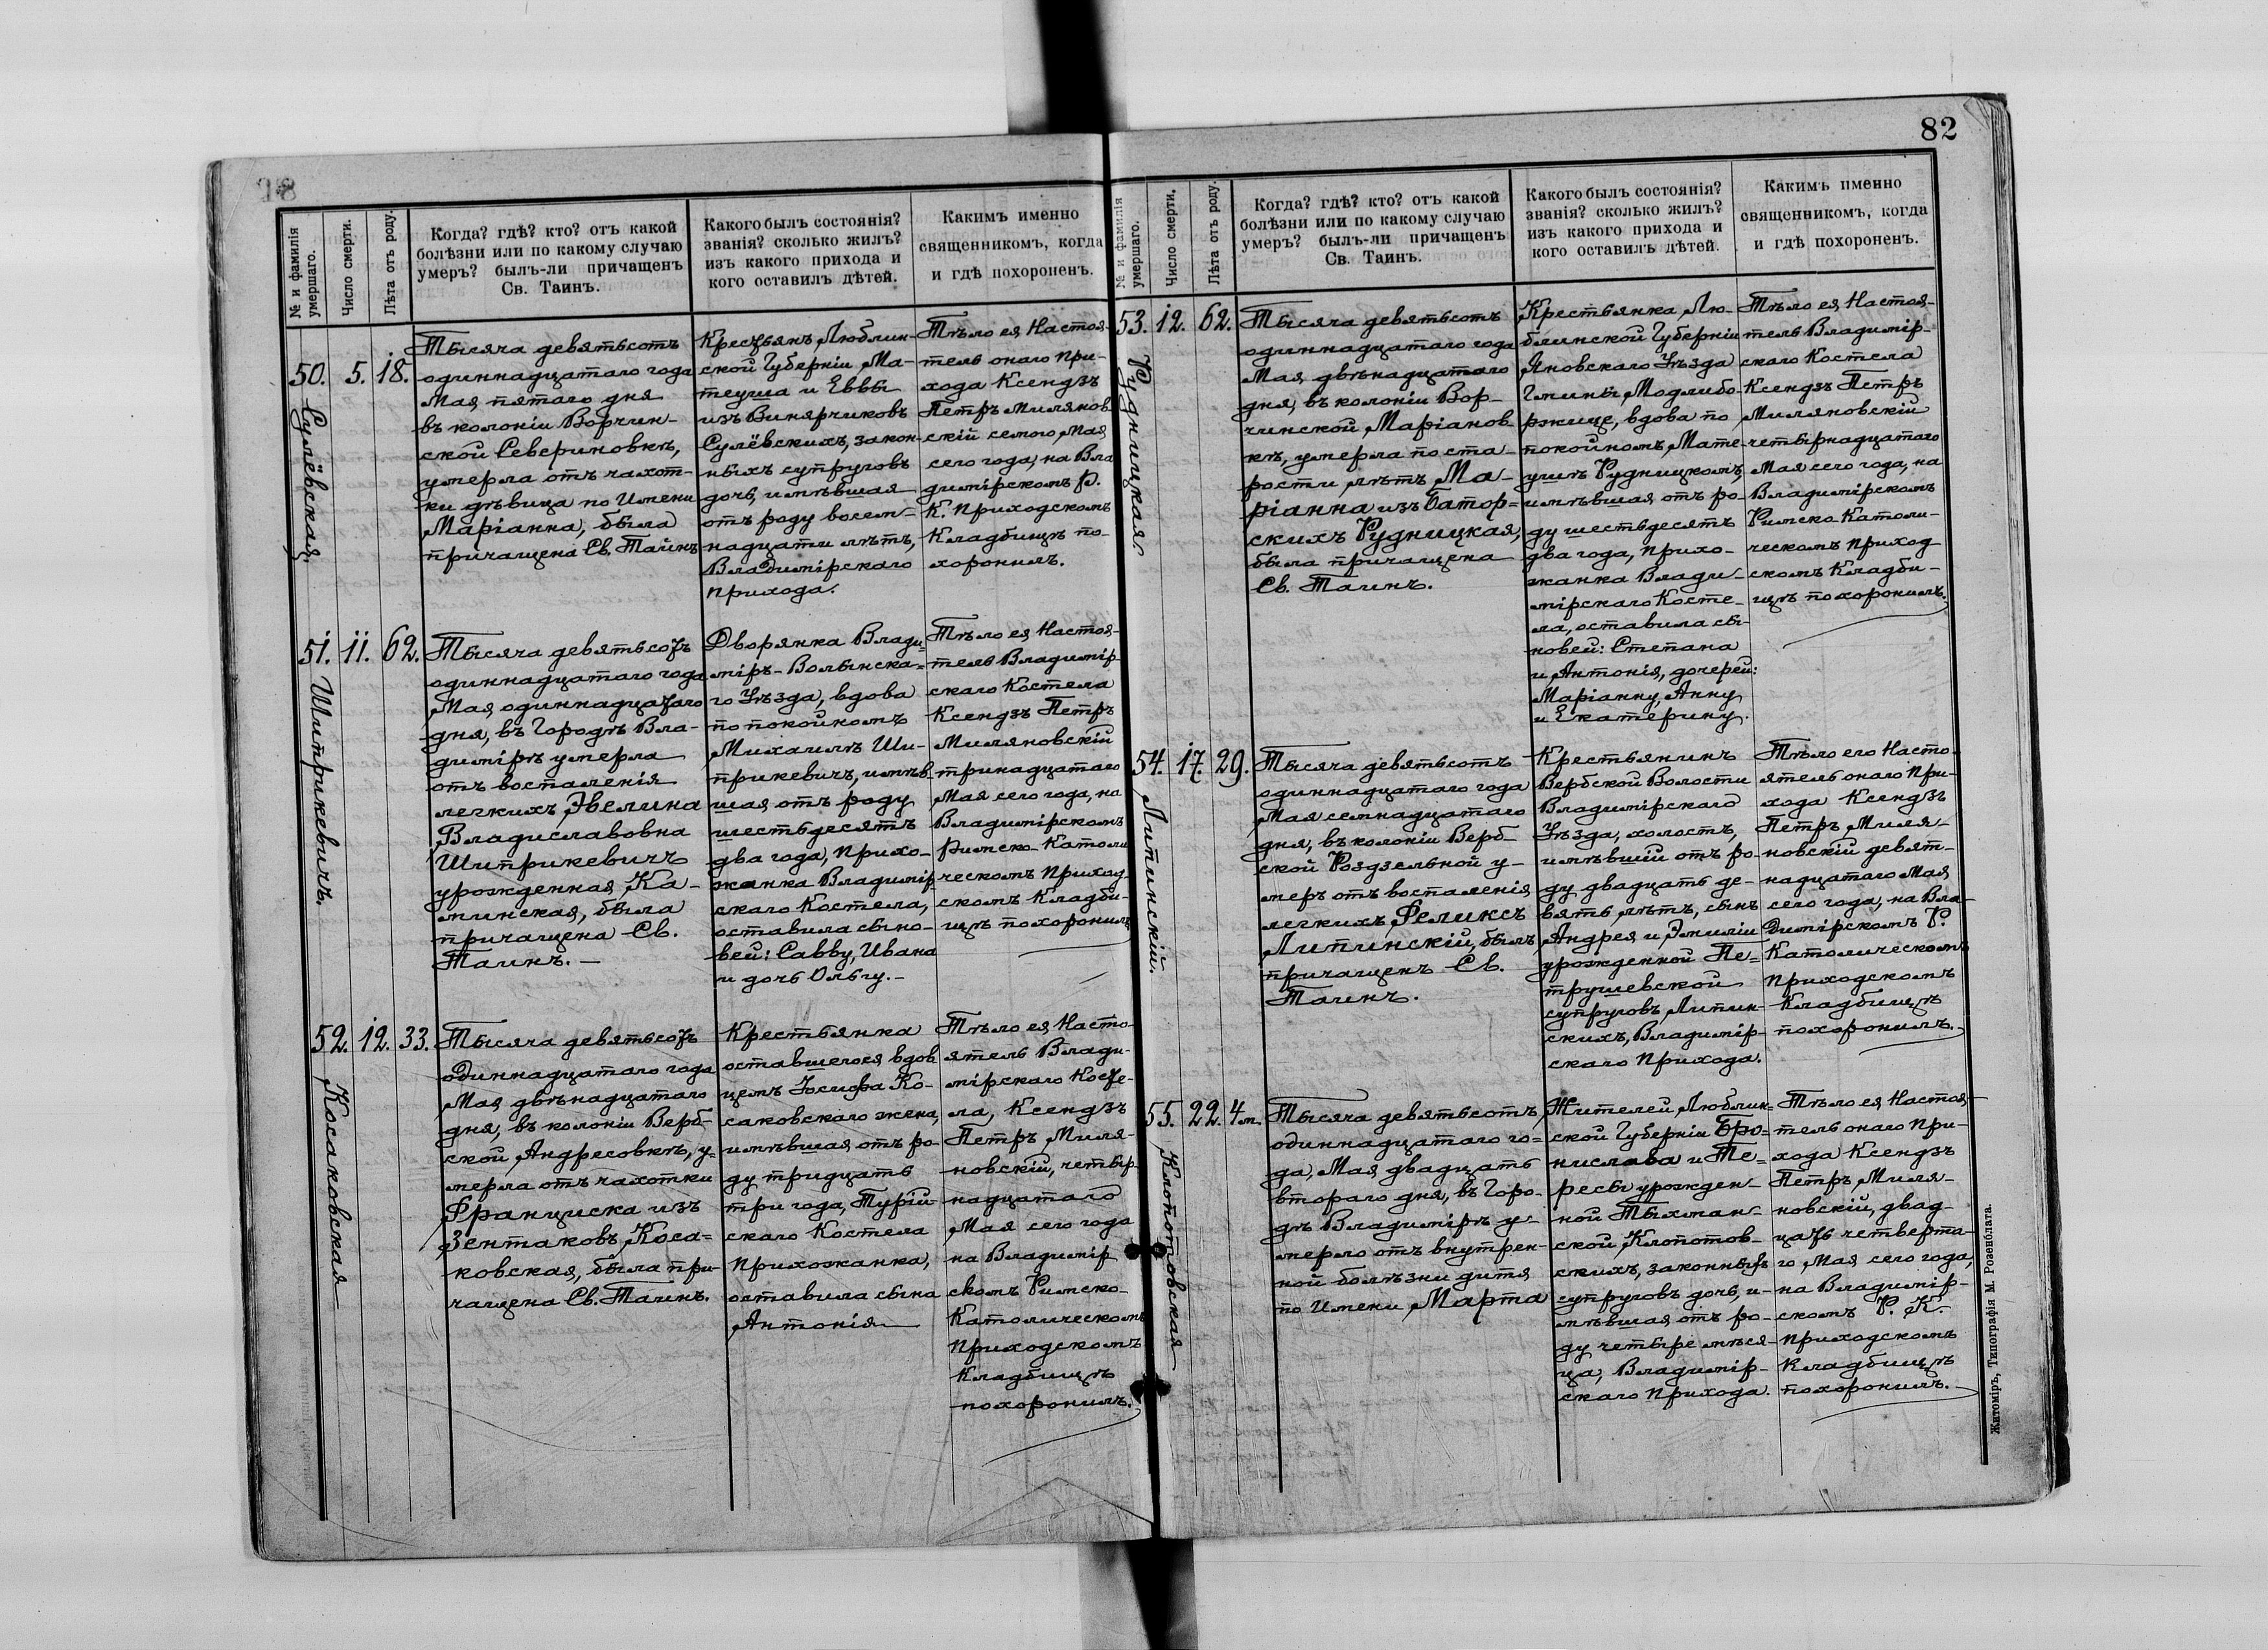 82
№ и фамилія
умершаго.
Число смерти.
Лѣта отъ роду.
Когда? гдѣ? кто? отъ какой
болѣзни или по какому случаю
умеръ? былъ-ли причащенъ
Св. Таинъ.
Какого былъ состоянія?
званія? сколько жилъ?
изъ какого прихода и
кого оставилъ дѣтей.
Какимъ именно
священникомъ, когда
и гдѣ похороненъ.
50.
Сулёвская.
5.
18.
Тысяча девятьсотъ
одиннадцатаго года
Мая пятаго дня
въ колоніи Ворчин-
ской Севериновкѣ,
умерла отъ чахот-
ки дѣвица по Имени
Маріанна, была
причащена Св. Таинъ
Крестьянъ Люблин-
ской Губерніи Ма-
теуша и Еввы
изъ Винярчиковъ
Сулёвскихъ, закон-
ныхъ супруговъ
дочь, имѣвшая
отъ роду восем-
надцати лѣтъ,
Владимірскаго
прихода.
Тѣло ея Настоя-
тель онаго При-
хода Ксендзъ
Петръ Милянов
скій семого Мая
сего года, на Вла
димірскомъ Р.
К. Приходскомъ
Кладбищѣ по-
хоронилъ.
51.
Шиприкевичъ.
11.
62.
Тысяча девятьсотъ
одиннадцатаго года
Мая одиннадцатаго
дня, въ Городѣ Вла-
димірѣ умерла
отъ воспаленія
легкихъ Эвелина
Владиславовна
Шиприкевичъ
урожденная Ка-
минская, была
причащена Св.
Таинъ. —
Дворянка Влади-
міръ-Волынска-
го Уѣзда, вдова
по покойномъ
Михаилѣ Ши-
прикевичъ, имѣв-
шая отъ роду
шестьдесятъ
два года, Прихо-
жанка Владимір-
скаго Костела,
оставила сыно-
вей: Савву, Ивана
и дочь Ольгу. —
Тѣло ея Настоя-
тель Владимір-
скаго Костела
Ксендзъ Петръ
Миляновскій
тринадцатаго
Мая сего года, на
Владимірскомъ
Римско-Католи
ческомъ Приход
скомъ Кладби-
щѣ похоронилъ
52.
Косаковская
12.
33.
Тысяча девятьсотъ
одиннадцатаго года
Мая двѣнадцатаго
дня, въ колоніи Верб-
ской Андресовкѣ, у-
мерла отъ чахотки
Франциска изъ
Зентаковъ Коса-
ковская, была при-
чащена Св. Таинъ.
Крестьянка
оставшегося вдов
цемъ Іосифа Ко-
саковскаго жена,
имѣвшая отъ ро-
ду тридцать
три года, Турій-
скаго Костела
Прихожанка,
оставила сына
Антонія
Тѣло ея Насто-
ятель Влади-
мірскаго Косте-
ла, Ксендзъ
Петръ Миля-
новскій, четыр-
надцатаго
Мая сего года
на Владимір
скомъ Римско-
Католическомъ
Приходскомъ
Кладбищѣ
похоронилъ.
№ и фамилія
умершаго.
Число смерти.
Лѣта отъ роду.
Когда? гдѣ? кто? отъ какой
болѣзни или по какому случаю
умеръ? былъ-ли причащенъ
Св. Таинъ.
Какого былъ состоянія?
званія? сколько жилъ?
изъ какого прихода и
кого оставилъ дѣтей.
Какимъ именно
священникомъ, когда
и гдѣ похороненъ.
53.
Рудницкая.
12.
62.
Тысяча девятьсотъ
одиннадцатаго года
Мая двѣнадцатаго
дня, въ колоніи Вор-
чинской Маріанов-
кѣ, умерла по ста-
рости лѣтъ Ма-
ріанна изъ Батор-
скихъ Рудницкая,
была причащена
Св. Таинъ.
Крестьянка Лю-
блинской Губерніи
Яновскаго Уѣзда
Гмины Модлибо-
ржице, вдова по
покойномъ Мате-
ушѣ Рудницкомъ,
имѣвшая отъ ро-
ду шестьдесятъ
два года, Прихо-
жанка Влади-
мірскаго Косте-
ла, оставила сы-
новей: Степана
и Антонія, дочерей:
Маріанну, Анну
и Екатерину.
Тѣло ея Настоя-
тель Владимір-
скаго Костела
Ксендзъ Петръ
Миляновскій
четырнадцатаго
Мая сего года, на
Владимірскомъ
Римско-Католи-
ческомъ Приход
скомъ Кладби-
щѣ похоронилъ.
54.
Липинскій.
17.
29.
Тысяча девятьсотъ
одиннадцатаго года
Мая семнадцатаго
дня, въ колоніи Верб-
ской Роздзельной у-
меръ отъ воспаленія
легкихъ Феликсъ
Липинскій, былъ
причащенъ Св.
Таинъ.
Крестьянинъ
Вербской Волости
Владимірскаго
Уѣзда, холостъ,
имѣвшій отъ ро-
ду двадцать де-
вять лѣтъ, сынъ
Андрея и Эмиліи
урожденной Пе-
трушевской
супруговъ Липин-
скихъ, Владимір-
скаго Прихода.
Тѣло его Насто-
ятель онаго При-
хода Ксендзъ
Петръ Миля-
новскій девят-
надцатаго Мая
сего года, на Вла-
димірскомъ Р.
Католическомъ
Приходскомъ
Кладбищѣ
похоронилъ.
55.
Клопотовская
22.
4 м.
Тысяча девятьсотъ
одиннадцатаго го-
да, Мая двадцать
второго дня, въ Горо-
дѣ Владимірѣ у-
мерло отъ внутрен-
ной болѣзни дитя
по Имени Марта
Жителей Люблин-
ской Губерніи Бро-
нислава и Те-
ресы урожден-
ной Тыхман-
ской Клопотов-
скихъ, законныхъ
супруговъ дочь, и-
мѣвшая отъ ро-
ду четыре мѣся-
ца, Владимір-
скаго Прихода.
Тѣло ея Настоя-
тель онаго При-
хода Ксендзъ
Петръ Миля-
новскій, двад-
цать четверта-
го Мая сего года,
на Владимір-
скомъ Р. К.
Приходскомъ
Кладбищѣ
похоронилъ.
Житоміръ, Типографія М. Розенблата.